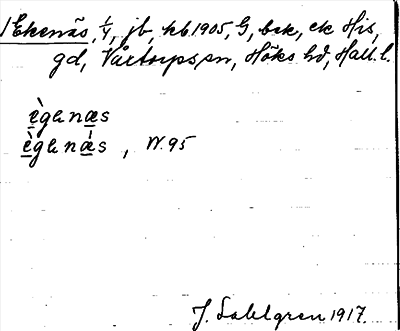 1 Ekenäs, 1/4, jb, kb 1905, G, bek, ek His,
gd, Vårtorps sn, Höks hd, Hall. l.
ègenæs
ègenǽs, W. 95
J. Sahlgren 1917.